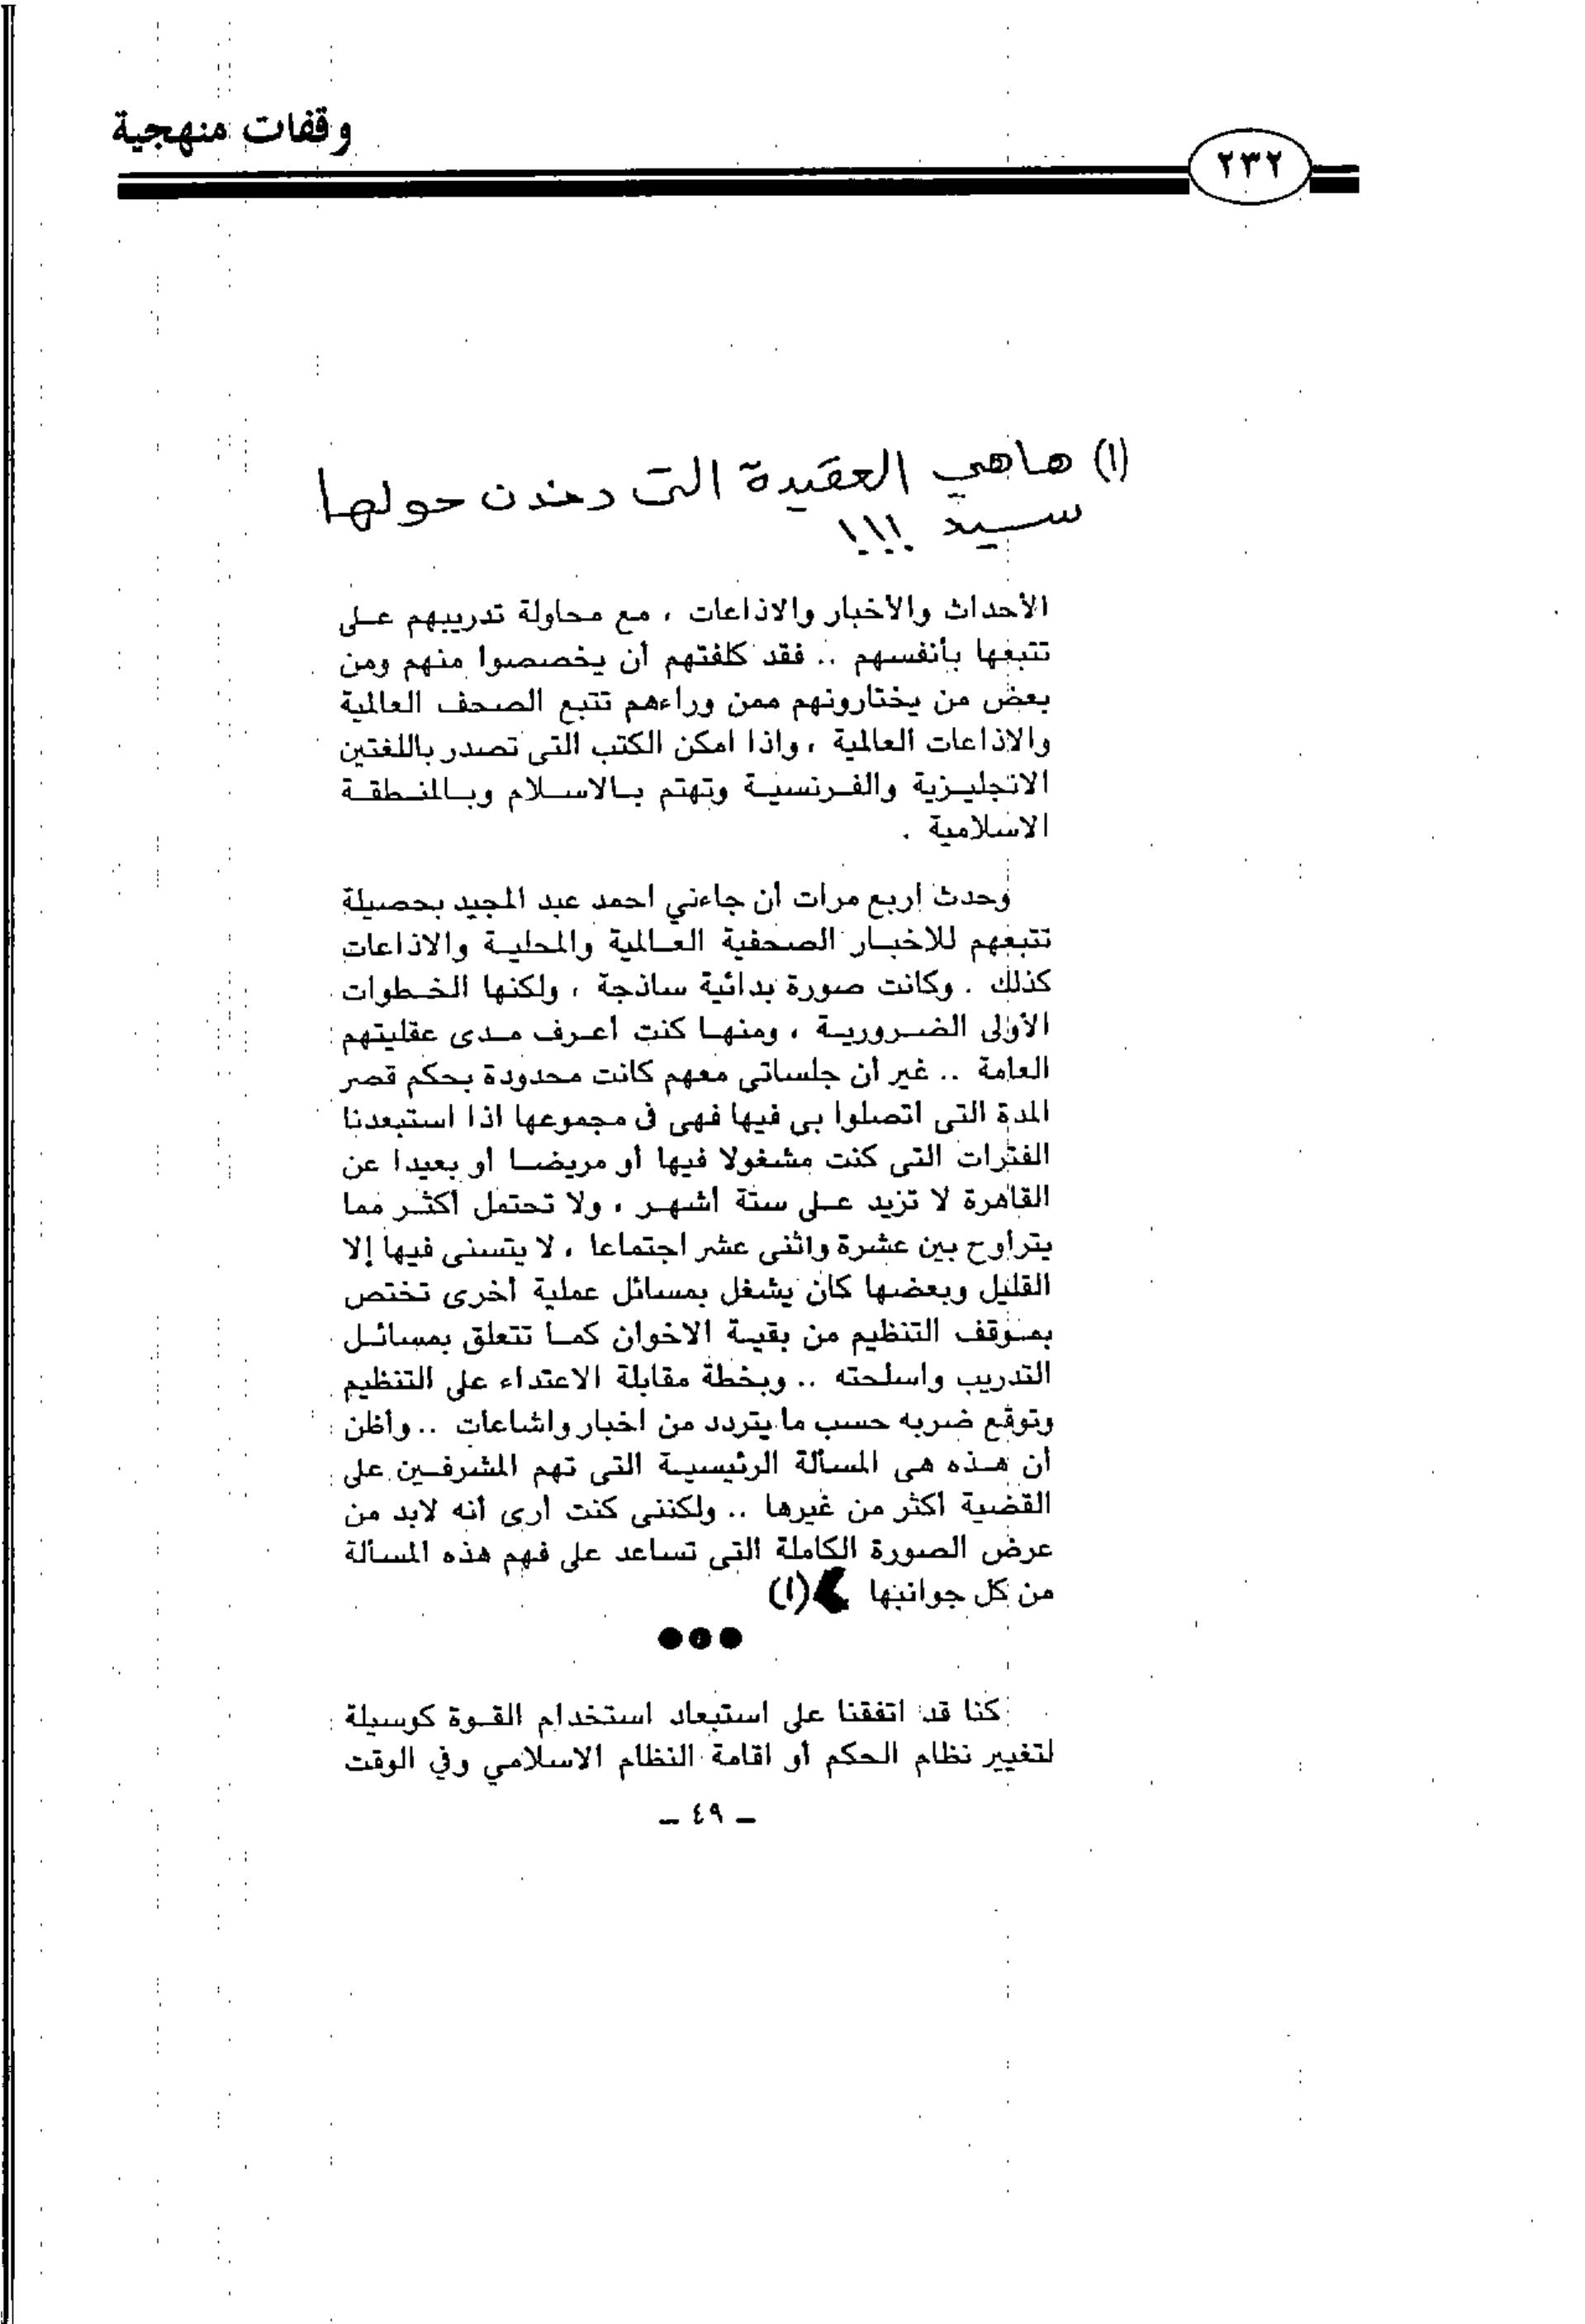 وقفات منهجية
٢٣٢
(١) هاهي العقيدة التى دندن حولها
سيد !!!
الأحداث والأخبار والاذاعات ، مع محاولة تدريبهم على
تتبعها بأنفسهم .. فقد كلفتهم أن يخصصوا منهم ومن
بعض من يختارونهم ممن وراءهم تتبع الصحف العالمية
والاذاعات العالمية ، واذا امكن الكتب التى تصدر باللغتين
الانجليزية والفرنسية وتهتم بالاسلام وبالمنطقة
الاسلامية .
وحدث أربع مرات أن جاءني احمد عبد المجيد بحصيلة
تتبعهم للاخبار الصحفية العالمية والمحلية والاذاعات
كذلك . وكانت صورة بدائية ساذجة ، ولكنها الخطوات
الأولى الضرورية ، ومنها كنت أعرف مدى عقليتهم
العامة .. غير أن جلساتى معهم كانت محدودة بحكم قصر
المدة التى اتصلوا بى فيها فهى فى مجموعها اذا استبعدنا
الفترات التى كنت مشغولا فيها أو مريضا أو بعيدا عن
القاهرة لا تزيد على ستة أشهر ، ولا تحتمل أكثر مما
يتراوح بين عشرة واثنى عشر اجتماعا ، لا يتسنى فيها إلا
القليل وبعضها كان يشغل بمسائل عملية أخرى تختص
بموقف التنظيم من بقية الاخوان كما تتعلق بمسائل
التدريب واسلحته .. وبخطة مقابلة الاعتداء على التنظيم
وتوقع ضربه حسب ما يتردد من اخبار واشاعات .. وأظن
أن هذه هى المسألة الرئيسية التى تهم المشرفين على
القضية أكثر من غيرها .. ولكننى كنت أرى أنه لابد من
عرض الصورة الكاملة التى تساعد على فهم هذه المسألة
من كل جوانبها (١)
كنا قد اتفقنا على استبعاد استخدام القوة كوسيلة
لتغيير نظام الحكم أو اقامة النظام الاسلامي وفي الوقت
– ٤٩ –